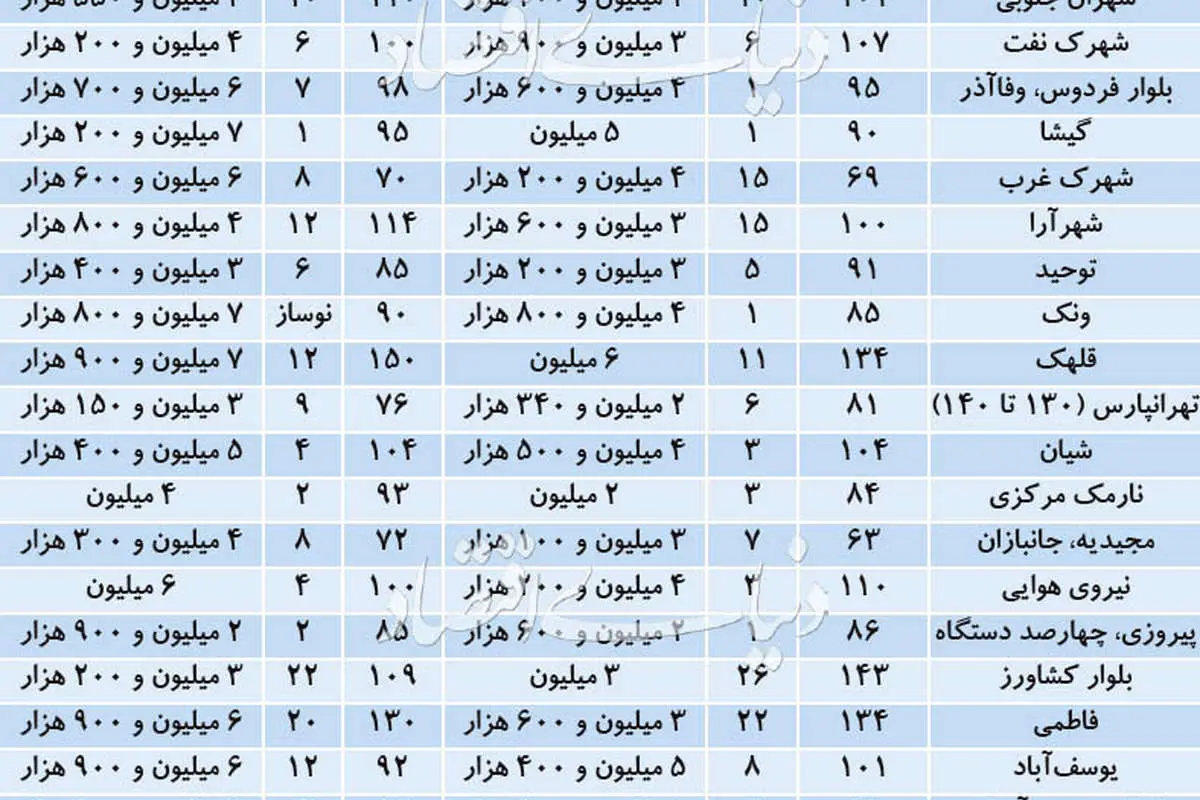 شهرک نفت ۱۰۷ ۶ ۳ میلیون و ۹۰۰ هزار ۱۰۰ ۶ ۴ میلیون و ۲۰۰ هزار
بلوار فردوس، وفاآذر ۹۵ ۱ ۴ میلیون و ۶۰۰ هزار ۹۸ ۷ ۶ میلیون و ۷۰۰ هزار
گیشا ۹۰ ۱ ۵ میلیون ۹۵ ۱ ۷ میلیون و ۲۰۰ هزار
شهرک غرب ۶۹ ۱۵ ۴ میلیون و ۲۰۰ هزار ۷۰ ۸ ۶ میلیون و ۶۰۰ هزار
شهرآرا ۱۰۰ ۱۵ ۳ میلیون و ۶۰۰ هزار ۱۱۴ ۱۲ ۴ میلیون و ۸۰۰ هزار
توحید ۹۱ ۵ ۳ میلیون و ۲۰۰ هزار ۸۵ ۶ ۳ میلیون و ۴۰۰ هزار
ونک ۸۵ ۱ ۴ میلیون و ۸۰۰ هزار ۹۰ نوساز ۷ میلیون و ۸۰۰ هزار
قلهک ۱۳۴ ۱۱ ۶ میلیون ۱۵۰ ۱۲ ۷ میلیون و ۹۰۰ هزار
تهرانپارس (۱۳۰ تا ۱۴۰) ۸۱ ۶ ۲ میلیون و ۳۴۰ هزار ۷۶ ۹ ۳ میلیون و ۱۵۰ هزار
شیان ۱۰۴ ۳ ۴ میلیون و ۵۰۰ هزار ۱۰۴ ۴ ۵ میلیون و ۴۰۰ هزار
نارمک مرکزی ۸۴ ۳ ۲ میلیون ۹۳ ۲ ۴ میلیون
مجیدیه، جانبازان ۶۳ ۷ ۳ میلیون و ۱۰۰ هزار ۷۲ ۸ ۴ میلیون و ۳۰۰ هزار
نیروی هوایی ۱۱۰ ۳ ۴ میلیون و ۲۰۰ هزار ۱۰۰ ۴ ۶ میلیون
پیروزی، چهارصد دستگاه ۸۶ ۱ ۲ میلیون و ۶۰۰ هزار ۸۵ ۲ ۲ میلیون و ۹۰۰ هزار
بلوار کشاورز ۱۴۳ ۲۶ ۳ میلیون ۱۰۹ ۲۲ ۳ میلیون و ۲۰۰ هزار
فاطمی ۱۳۴ ۲۲ ۳ میلیون و ۶۰۰ هزار ۱۳۰ ۲۰ ۶ میلیون و ۹۰۰ هزار
یوسف‌آباد ۱۰۱ ۸ ۵ میلیون و ۴۰۰ هزار ۹۲ ۱۲ ۶ میلیون و ۹۰۰ هزار
دنیای اقتصاد
دنیای اقتصاد